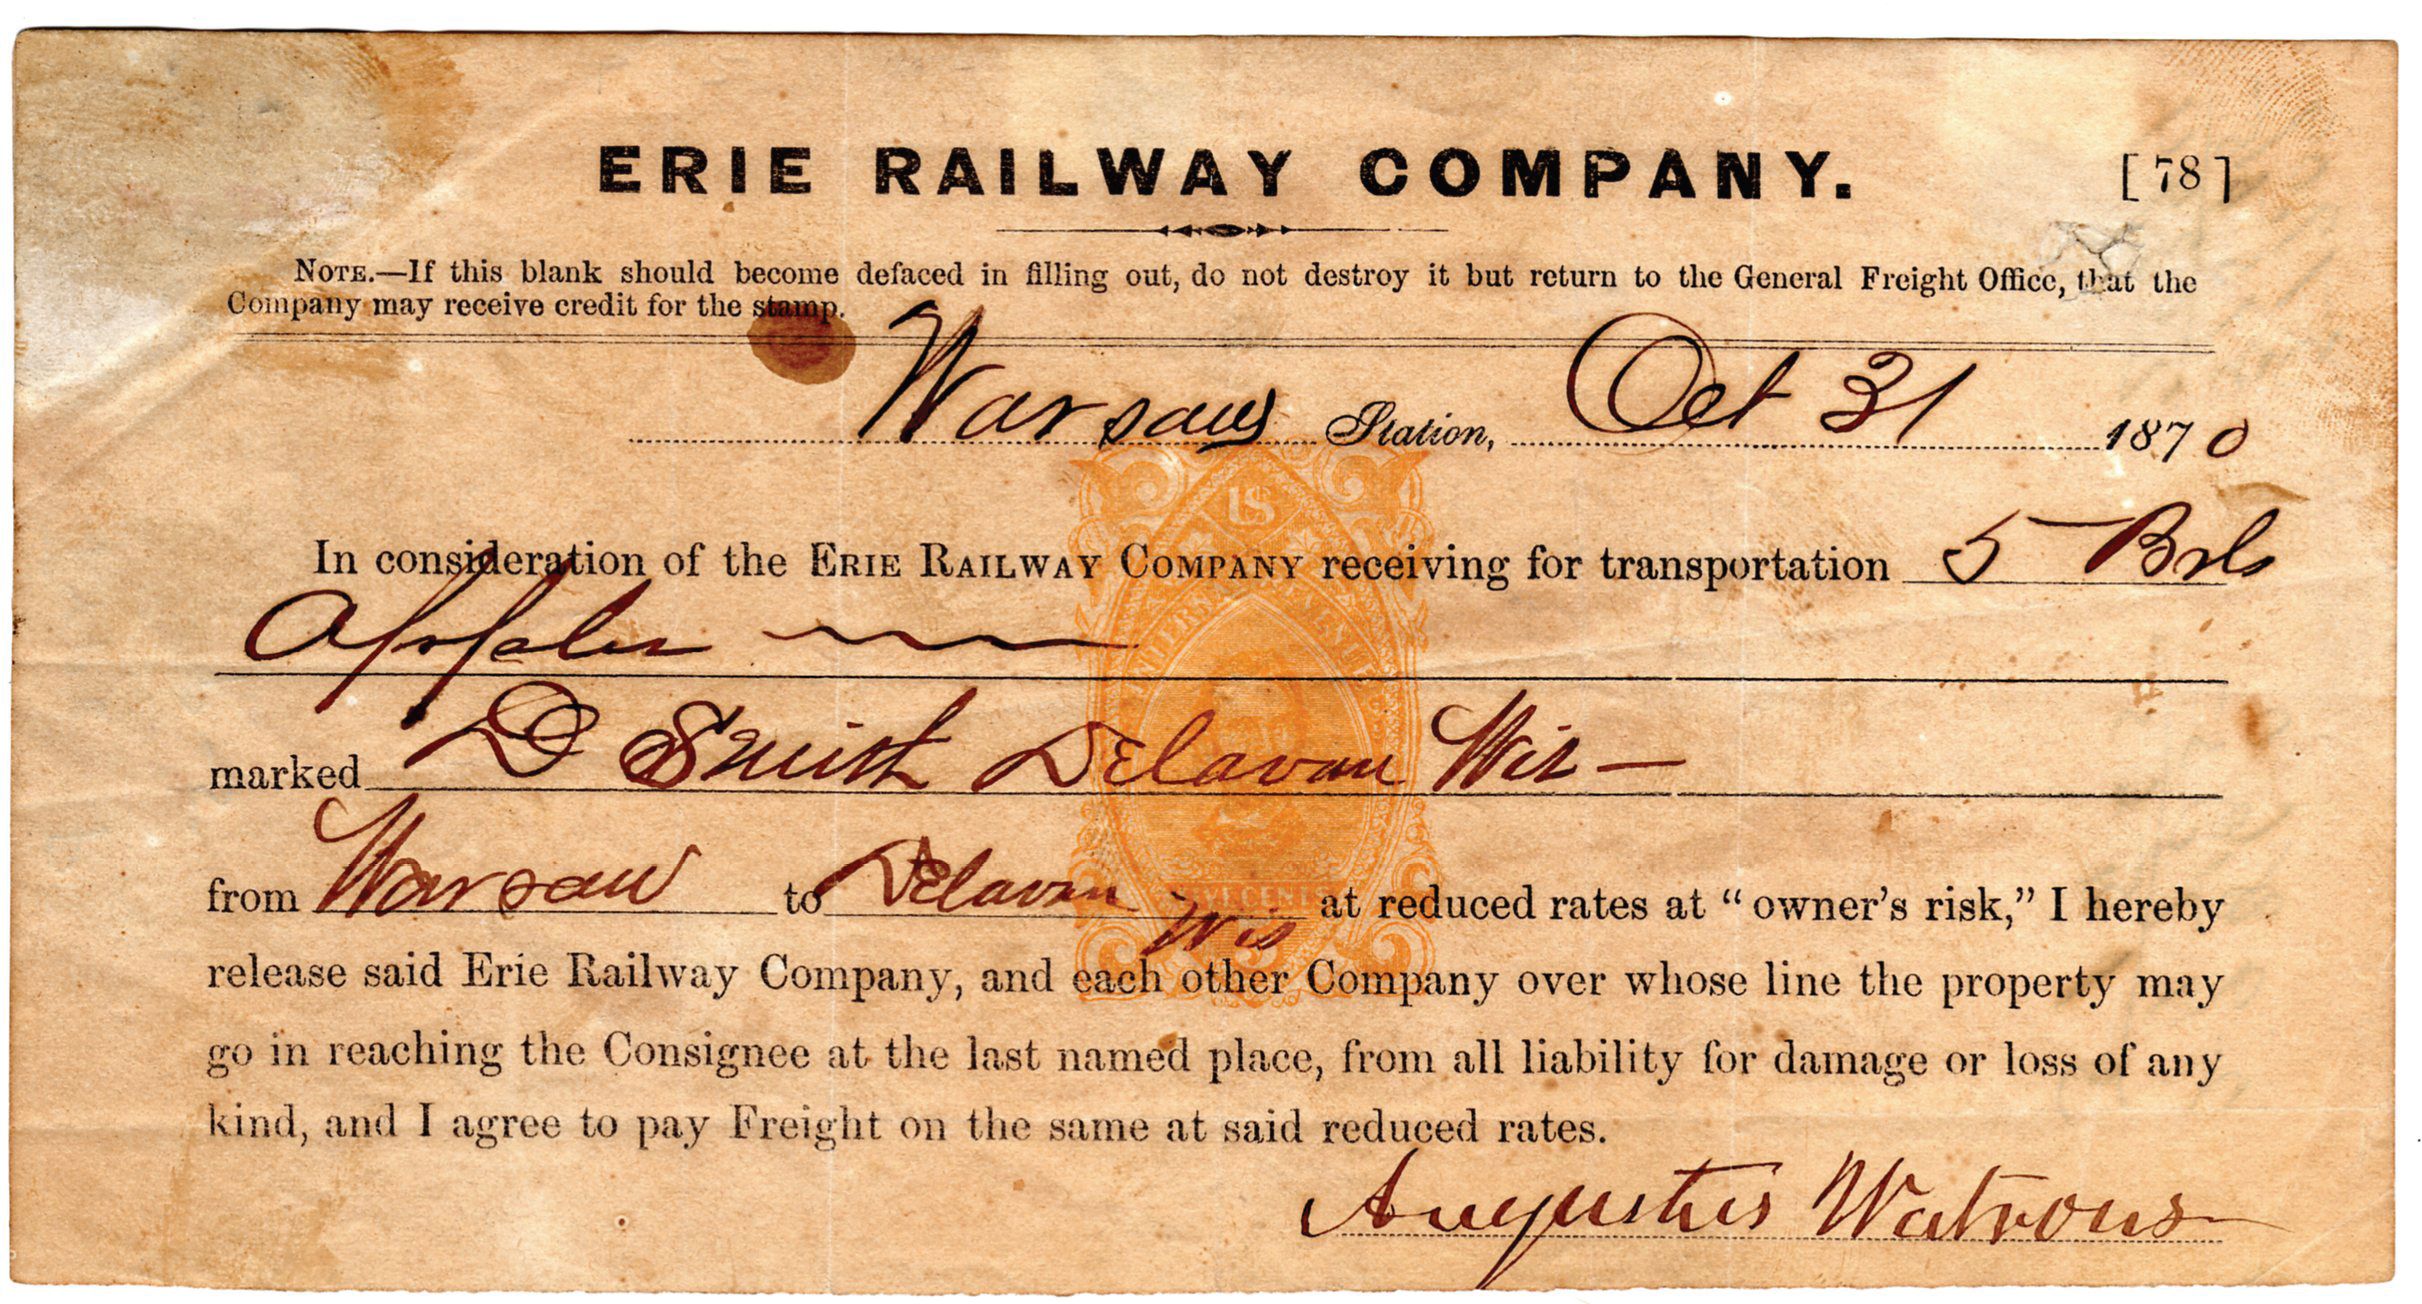 ERIE RAILWAY COMPANY. [78]
NOTE.—If this blank should become defaced in filling out, do not destroy it but return to the General Freight Office, that the
Company may receive credit for the stamp.
Warsaw Station, Oct 31 1870
US
In consideration of the ERIE RAILWAY COMPANY receiving for transportation 5 Brls
Apples
INTERNAL REVENUE
marked D Smith Delavan Wis —
from Warsaw to Delavan Wis at reduced rates at “owner’s risk,” I hereby
release said Erie Railway Company, and each other Company over whose line the property may
go in reaching the Consignee at the last named place, from all liability for damage or loss of any
kind, and I agree to pay Freight on the same at said reduced rates.
Augustus Watrous